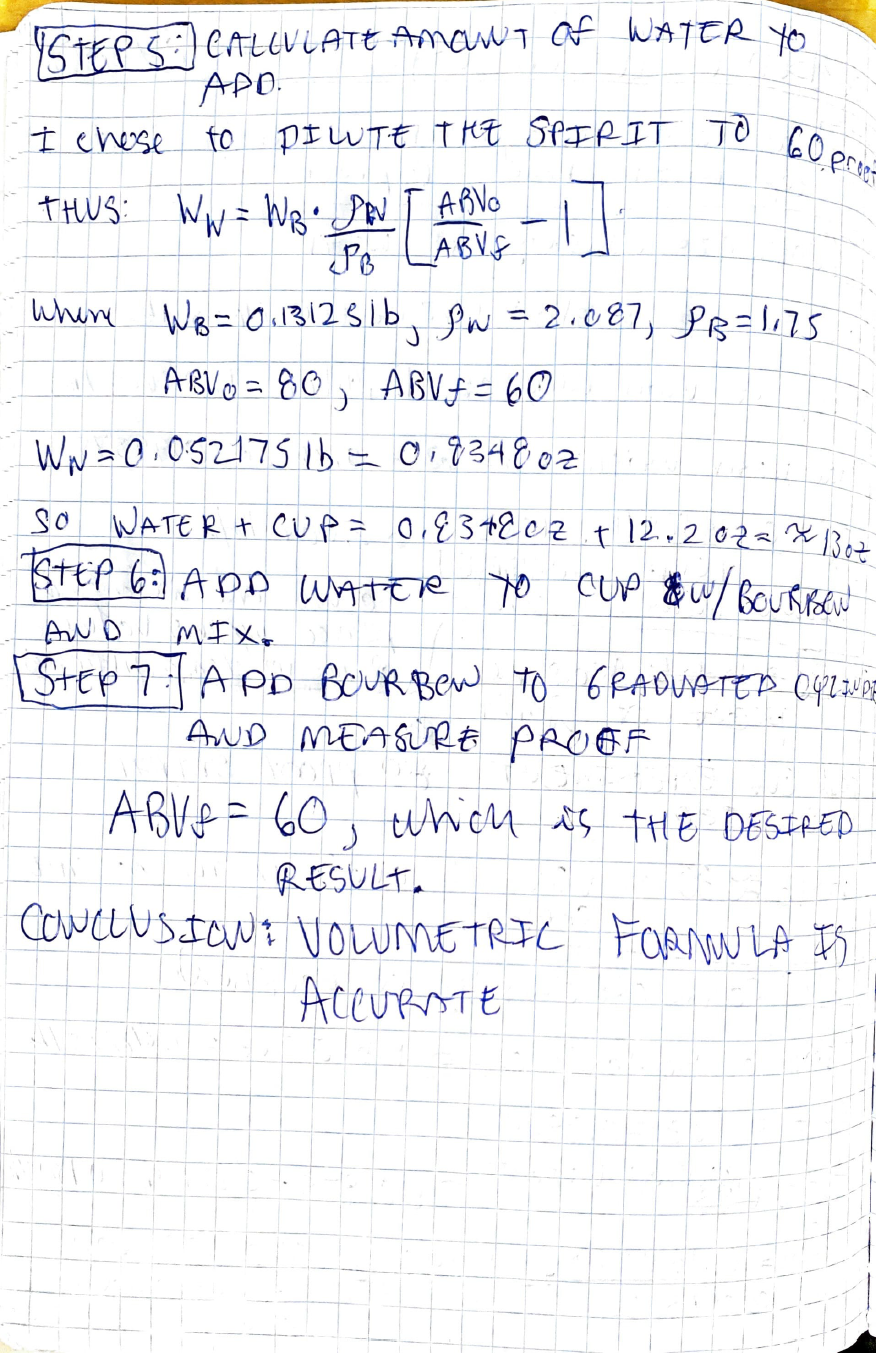 STEP 5: CALCULATE AMOUNT OF WATER TO
ADD.
I chose to DILUTE THE SPIRIT TO 60 proof
THUS: WW = WB · ρW/ρB [ABV0/ABVf - 1]
Where WB = 0.13125 lb, ρW = 2.087, ρB = 1.75
ABV0 = 80, ABVf = 60
WW = 0.052175 lb = 0.8348 oz
SO WATER + CUP = 0.8348 oz + 12.2 oz = ≈ 13 oz
STEP 6: ADD WATER TO CUP W/ BOURBON
AND MIX.
STEP 7: ADD BOURBON TO GRADUATED CYLINDE
AND MEASURE PROOF
ABVf = 60, which is THE DESIRED
RESULT.
CONCLUSION: VOLUMETRIC FORMULA IS
ACCURATE